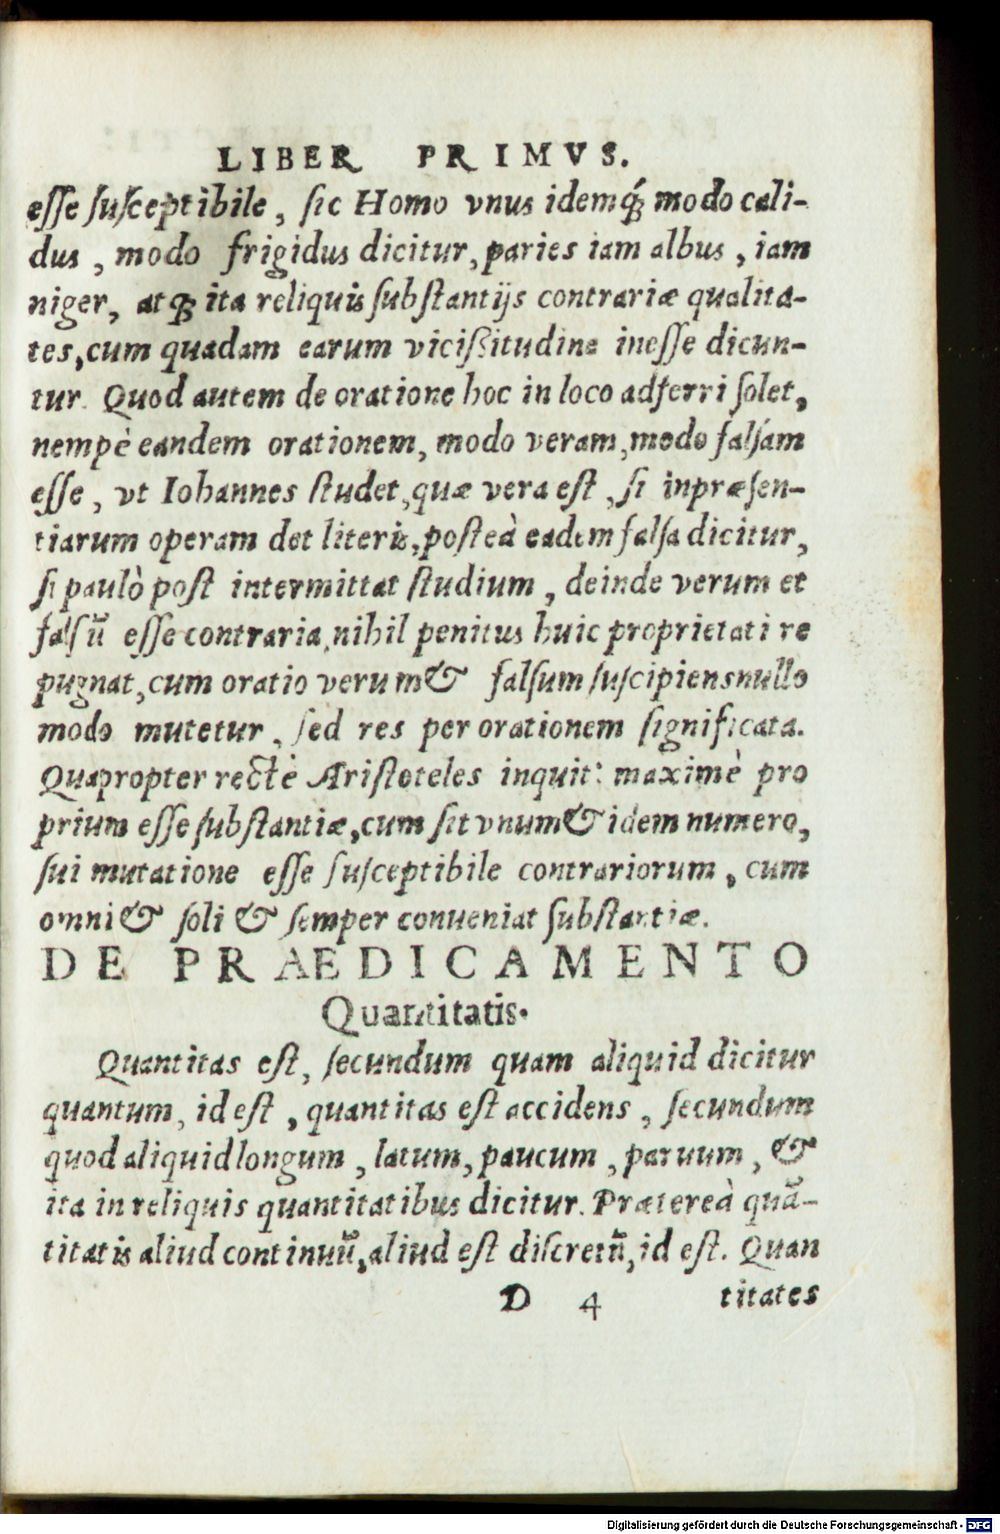 LIBER PRIMVS.
eſſe ſuſceptibile, ſic Homo vnus idemq́; modo cali-
dus, modo frigidus dicitur, paries iam albus, iam
niger, atq; ita reliquis ſubſtantijs contrariæ qualita-
tes, cum quadam earum viciſsitudine ineſſe dicun-
tur. Quod autem de oratione hoc in loco adferri ſolet,
nempè eandem orationem, modo veram, modo falſam
eſſe, vt Iohannes ſtudet, quæ vera eſt, ſi inpræſen-
tiarum operam det literis, poſteà eadem falſa dicitur,
ſi paulò poſt intermittat ſtudium, deinde verum et
falſū eſſe contraria, nihil penitus huic proprietati re
pugnat, cum oratio verum & falſum ſuſcipiens nullo
modo mutetur, ſed res per orationem ſignificata.
Quapropter rectè Ariſtoteles inquit: maximè pro
prium eſſe ſubſtantiæ, cum ſit vnum & idem numero,
ſui mutatione eſſe ſuſceptibile contrariorum, cum
omni & ſoli & ſemper conueniat ſubſtantiæ.
DE PRAEDICAMENTO
Quantitatis.
Quantitas eſt, ſecundum quam aliquid dicitur
quantum, id eſt, quantitas eſt accidens, ſecundum
quod aliquid longum, latum, paucum, paruum, &
ita in reliquis quantitatibus dicitur. Prætereà quā-
titatis aliud continuū, aliud eſt diſcretū, id eſt. Quan
D 4 titates
Digitalisierung gefördert durch die Deutsche Forschungsgemeinschaft - DFG